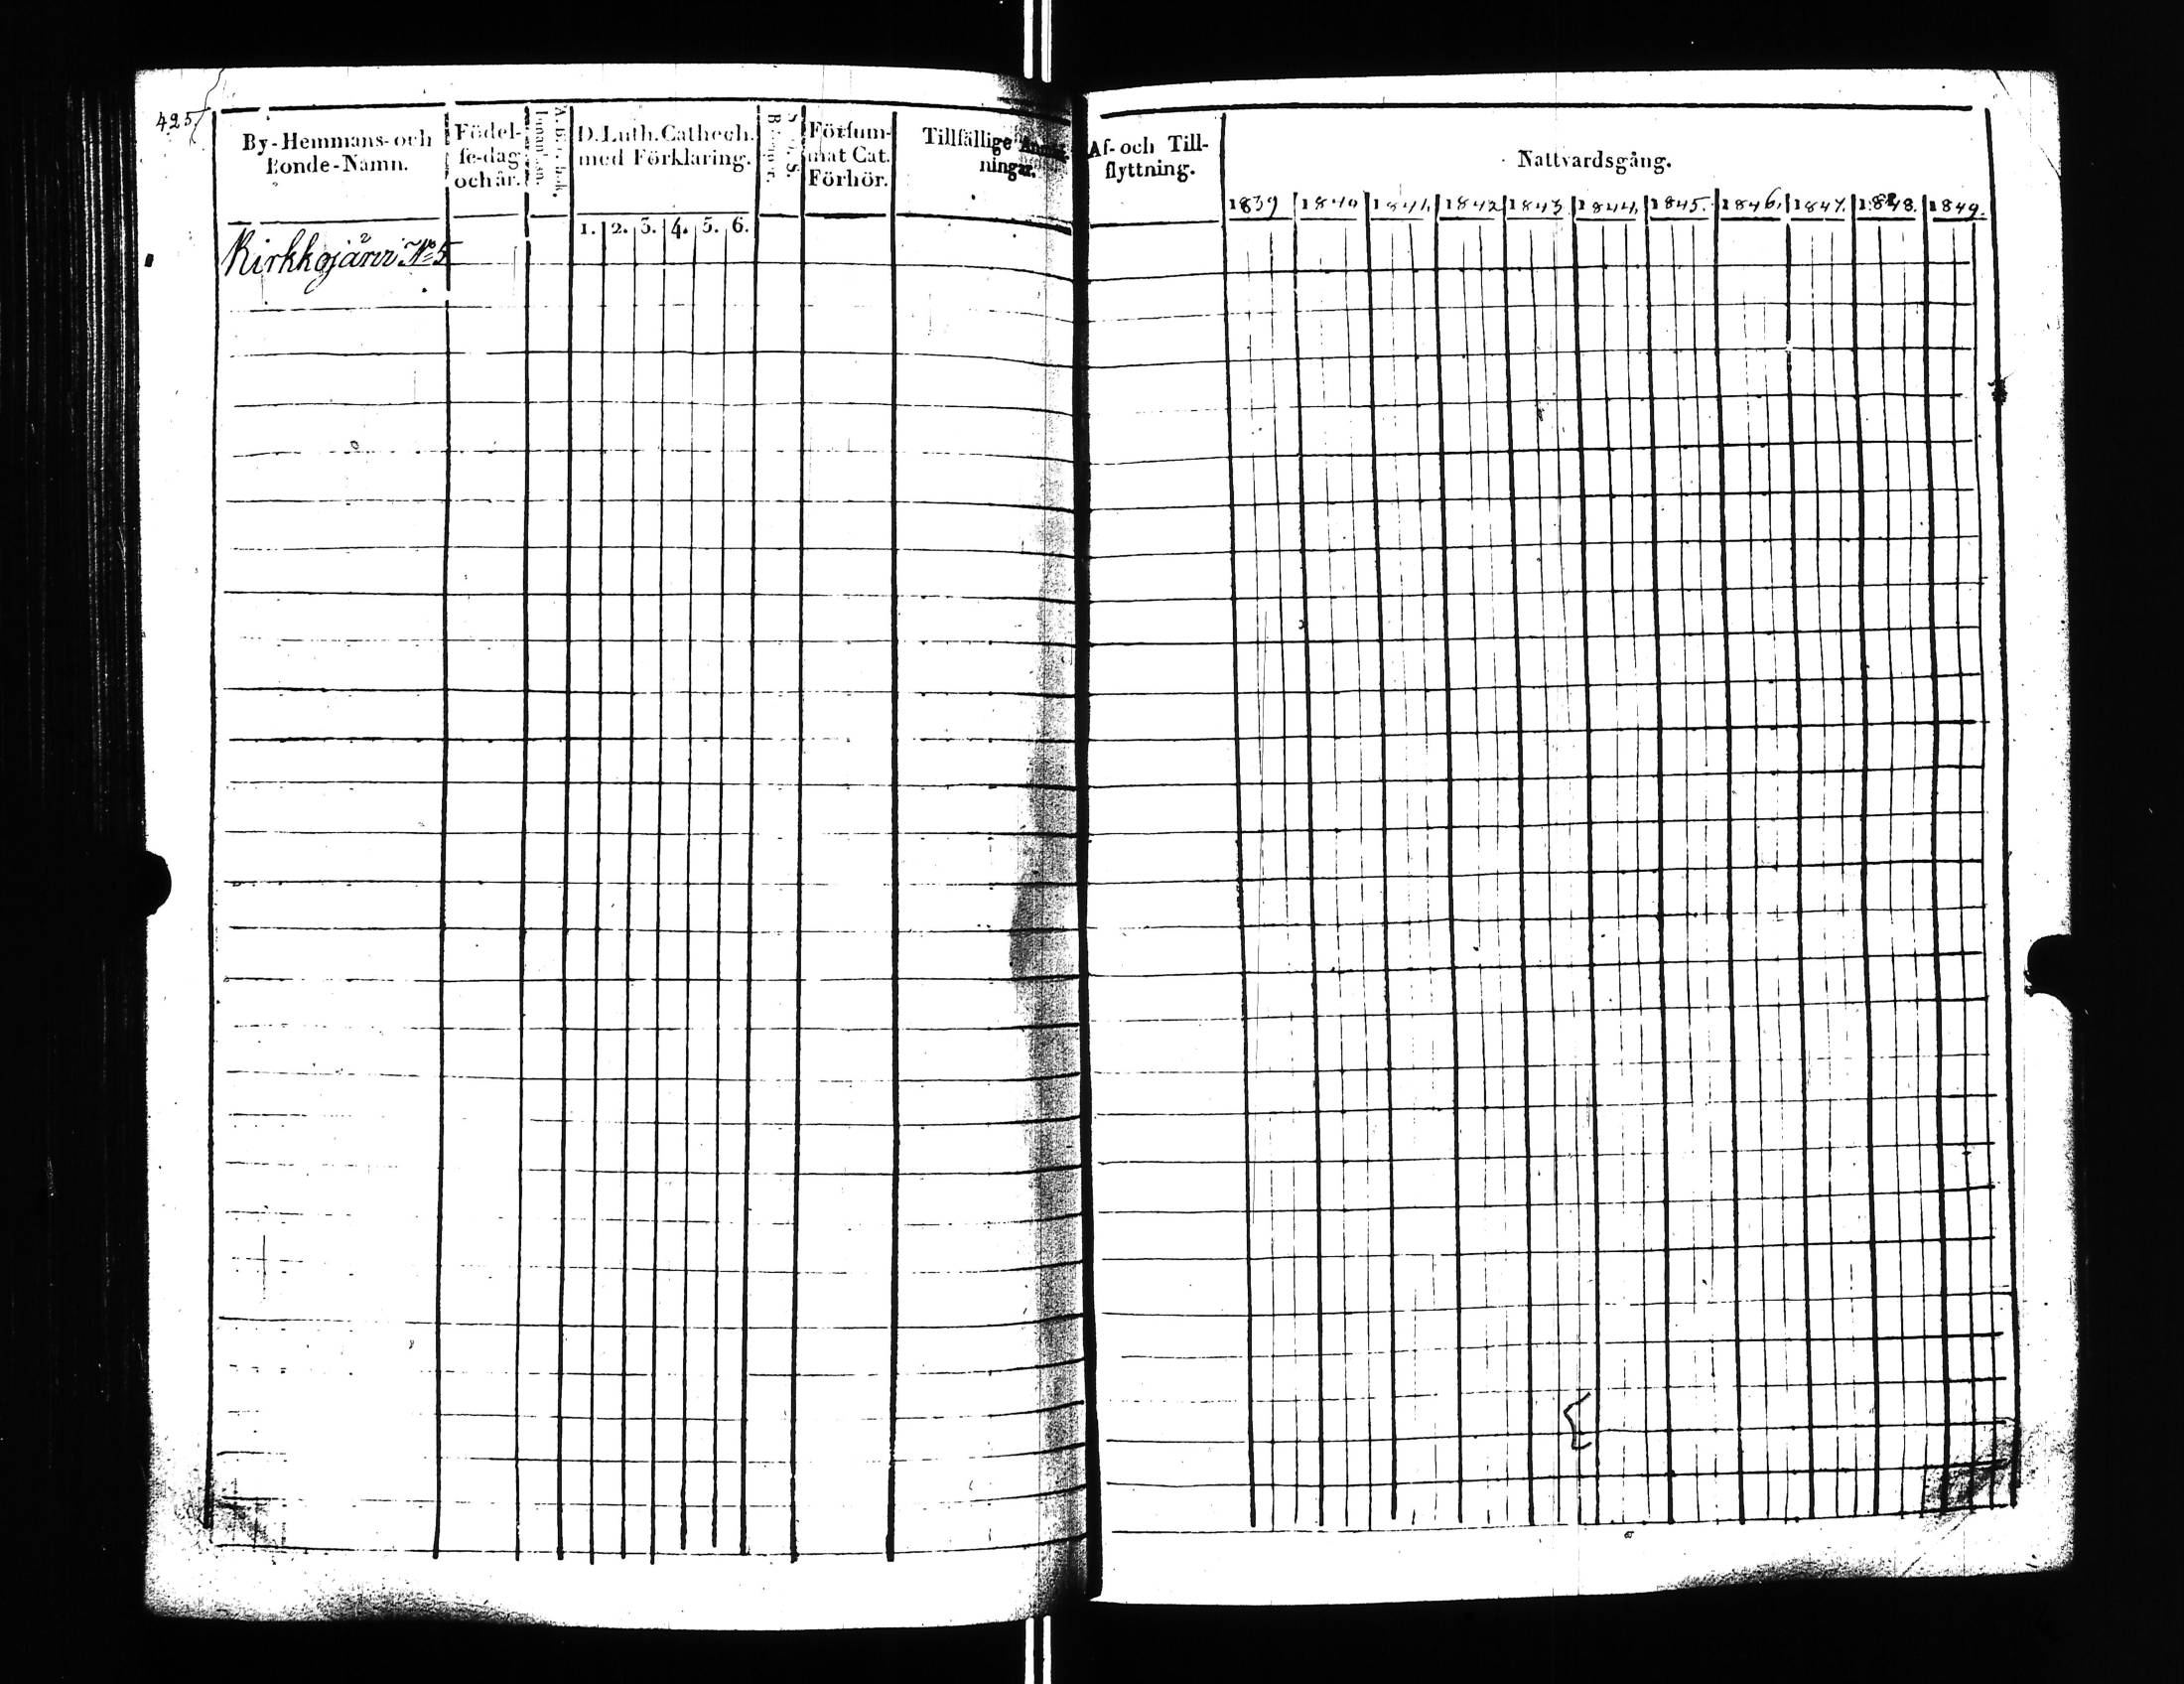 425
By-Hemmans- och
Bonde-Namn.
Födel-
se-dag
och år.
D. Luth. Cathech.
med Förklaring.
1. 2. 3. 4. 5. 6.
Försum-
mat Cat.
Förhör.
Tillfällige Anmärk-
ningar.
Kirkkojärvi No 5
Af- och Till-
flyttning.
Nattvardsgång.
1839 1840 1841. 1842 1843. 1844. 1845. 1846. 1847. 1848. 1849.